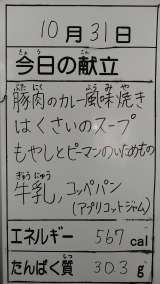 10月31日
きょう こん
今日の献立
ぶた にく ふう み や
豚肉のカレー風味焼き
はくさいのスープ
もやしとピーマンのいためもの
ぎゅう にゅう
牛乳, コッペパン
(アプリコットジャム)
エネルギー 567 cal
たんぱく質 30.3 g